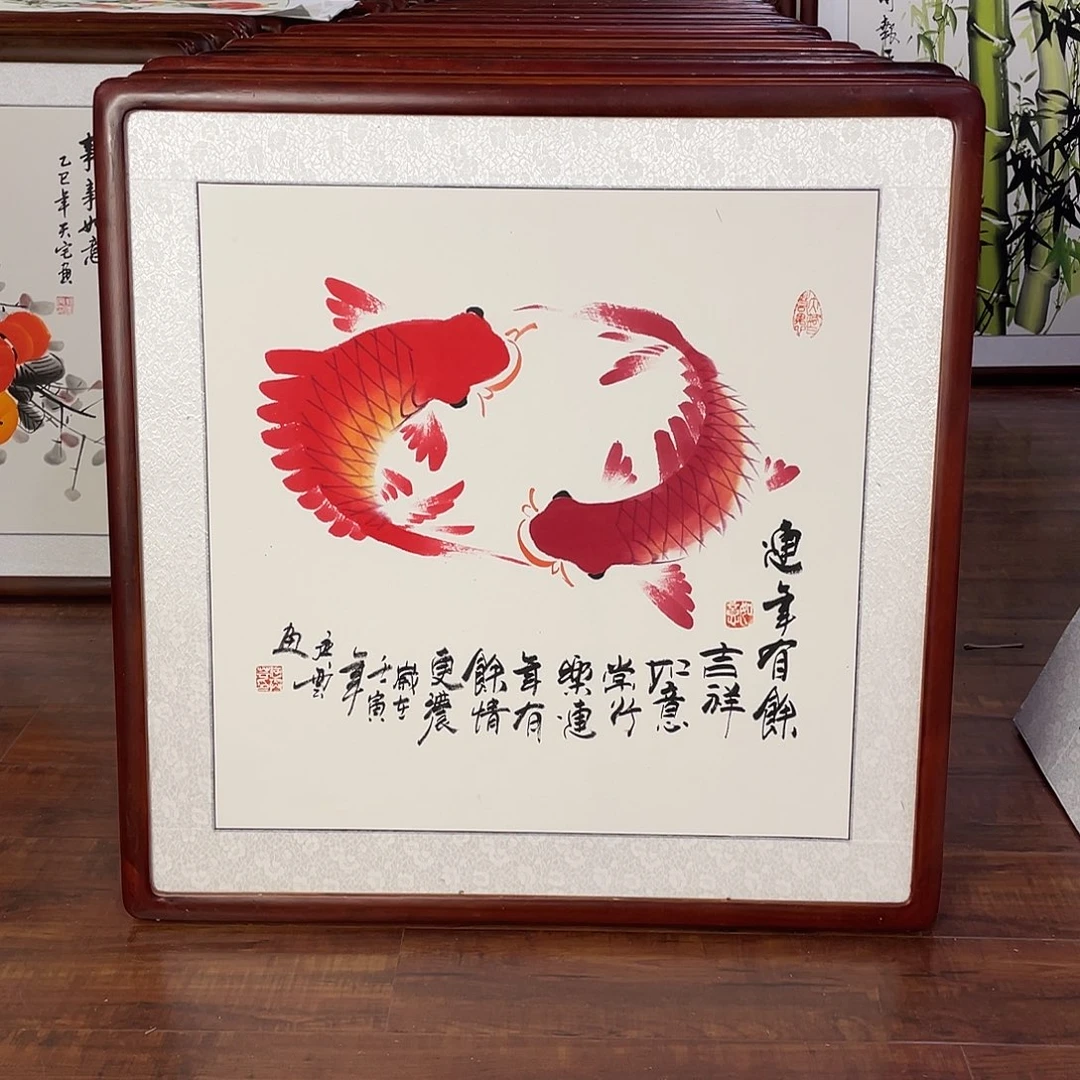 連年有餘
吉祥
如意
常行
樂連
年有
餘情
更濃
歲在
壬寅
年
画
事事如意
乙巳年天
報